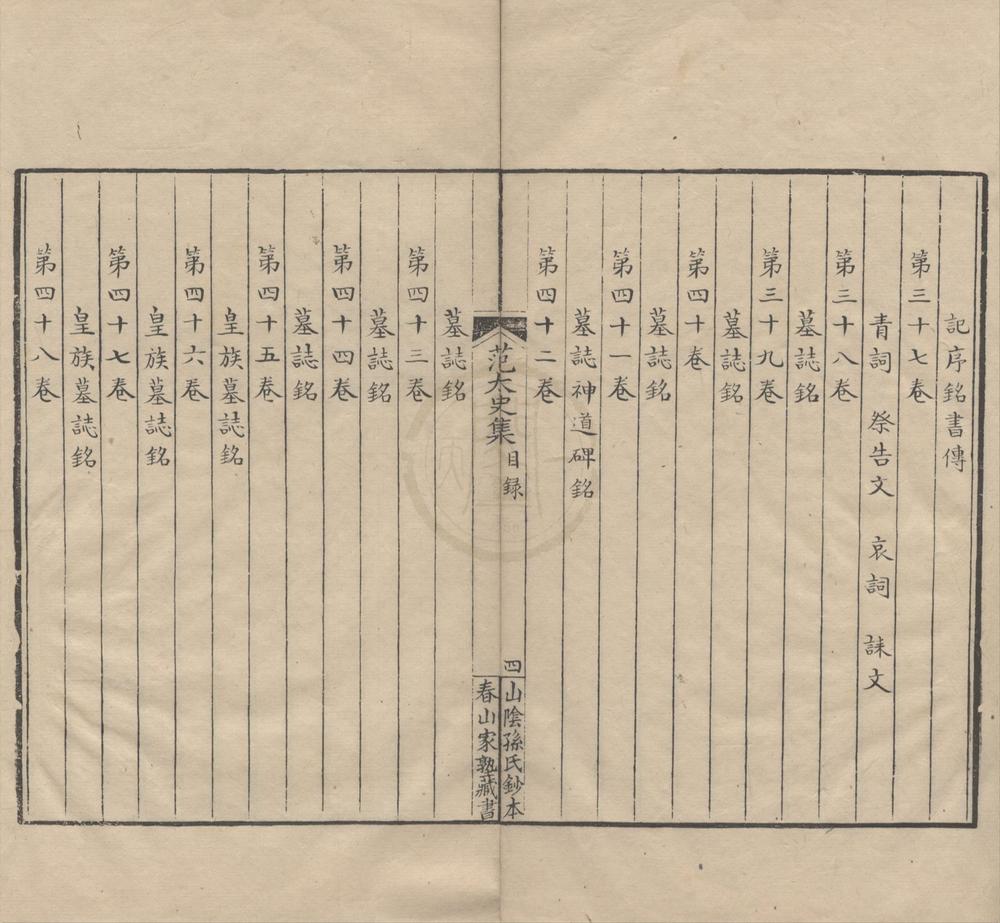 記序銘書傳
第三十七卷
青詞　祭告文　哀詞　誄文
第三十八卷
墓誌銘
第三十九卷
墓誌銘
第四十卷
墓誌銘
第四十一卷
墓誌神道碑銘
第四十二卷
范太史集
目録
四
山陰孫氏鈔本
春山家塾藏書
墓誌銘
第四十三卷
墓誌銘
第四十四卷
墓誌銘
第四十五卷
皇族墓誌銘
第四十六卷
皇族墓誌銘
第四十七卷
皇族墓誌銘
第四十八卷